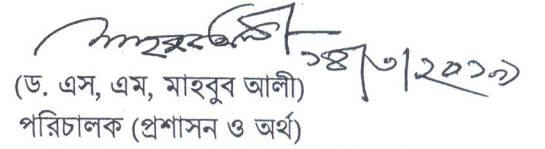 ১৪/৩/২০১৯
(ড. এস, এম, মাহবুব আলী)
পরিচালক (প্রশাসন ও অর্থ)